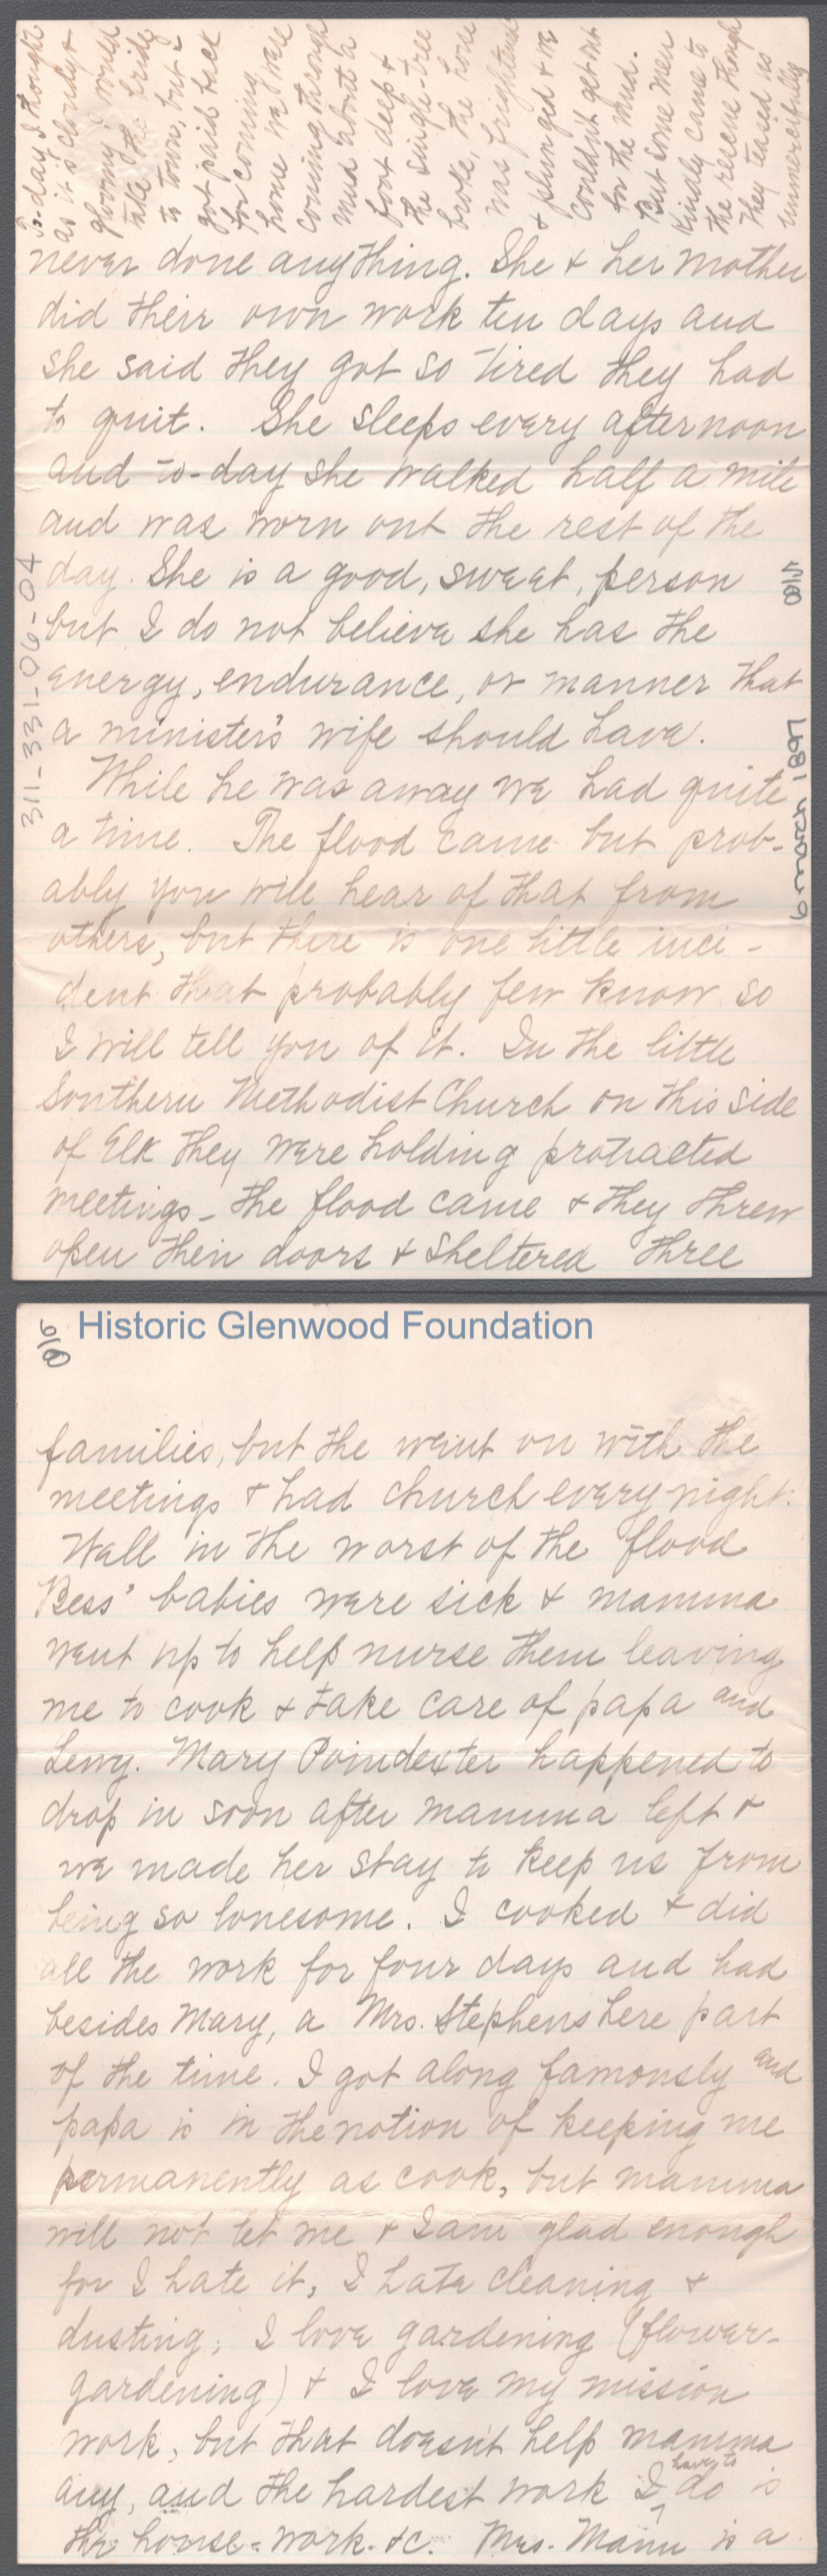 To-day I thought
as it is cloudy &
gloomy I would
take the bridle
to town, but I
got paid back
for coming
home we were
coming through
mud about a
foot deep &
the single-tree
broke, the horse
was frightened
& plunged & we
couldn't get out
for the mud.
But some men
kindly came to
the rescue though
they teased us
unmercifully
never done anything. She & her mother
did their own work ten days and
she said they got so tired they had
to quit. She sleeps every afternoon
and to-day she walked half a mile
and was worn out the rest of the
day. She is a good, sweet, person
but I do not believe she has the
energy, endurance, or manner that
a minister's wife should have.
While he was away we had quite
a time. The flood came but prob-
ably you will hear of that from
others, but there is one little inci-
dent that probably few know so
I will tell you of it. In the little
Southern Methodist Church on this side
of Elk they were holding protracted
meetings - the flood came & they threw
open their doors & sheltered three
311-331-06-04
6 march 1897
Historic Glenwood Foundation
families, but the went on with the
meetings & had church every night.
Well in the worst of the flood
Bess' babies were sick & mamma
went up to help nurse them leaving
me to cook & take care of papa and
Lewy. Mary Poindexter happened to
drop in soon after mamma left &
we made her stay to keep us from
being so lonesome. I cooked & did
all the work for four days and had
besides Mary, a Mrs. Stephens here part
of the time. I got along famously and
papa is in the notion of keeping me
permanently as cook, but mamma
will not let me & I am glad enough
for I hate it, I hate cleaning &
dusting, I love gardening (flower-
gardening) & I love my mission
work, but that doesn't help mamma
any, and the hardest work I have to do is
the house-work. &c. Mrs. Mann is a